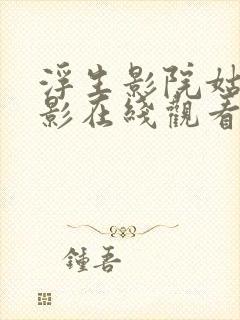 浮生影院姑
影在綫觀看
鍾吾